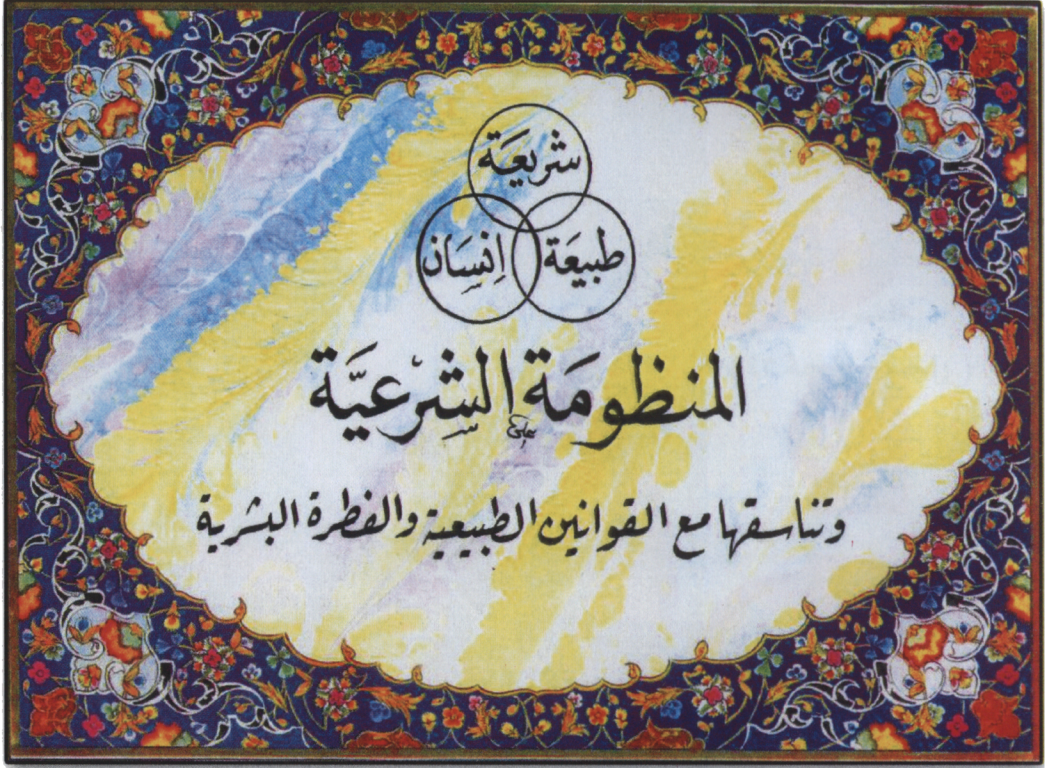 شريعَة
طبيعَة إنسَان
المنظومَة الشِرْعيَّة
وتناسقها مع القوانين الطبيعية والفطرة البشرية